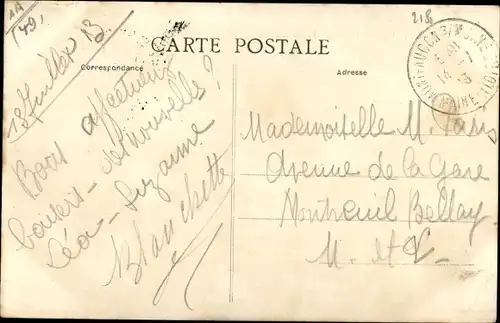 AA
(49)
218
CARTE POSTALE
Correspondance
Adresse
13 Juillet 13
Bons affectueux
baisers - des nouvelles ?
Léa - Suzanne
Blanchette
Mademoiselle M.
Avenue de la Gare
Montreuil Bellay
M. et L.